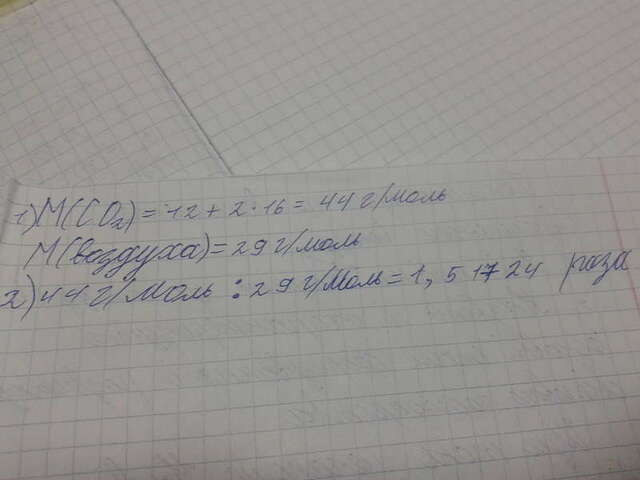 1) M(CO₂) = 12 + 2 · 16 = 44 г/моль
M(воздуха) = 29 г/моль
2) 44 г/моль : 29 г/моль = 1,51724 раза